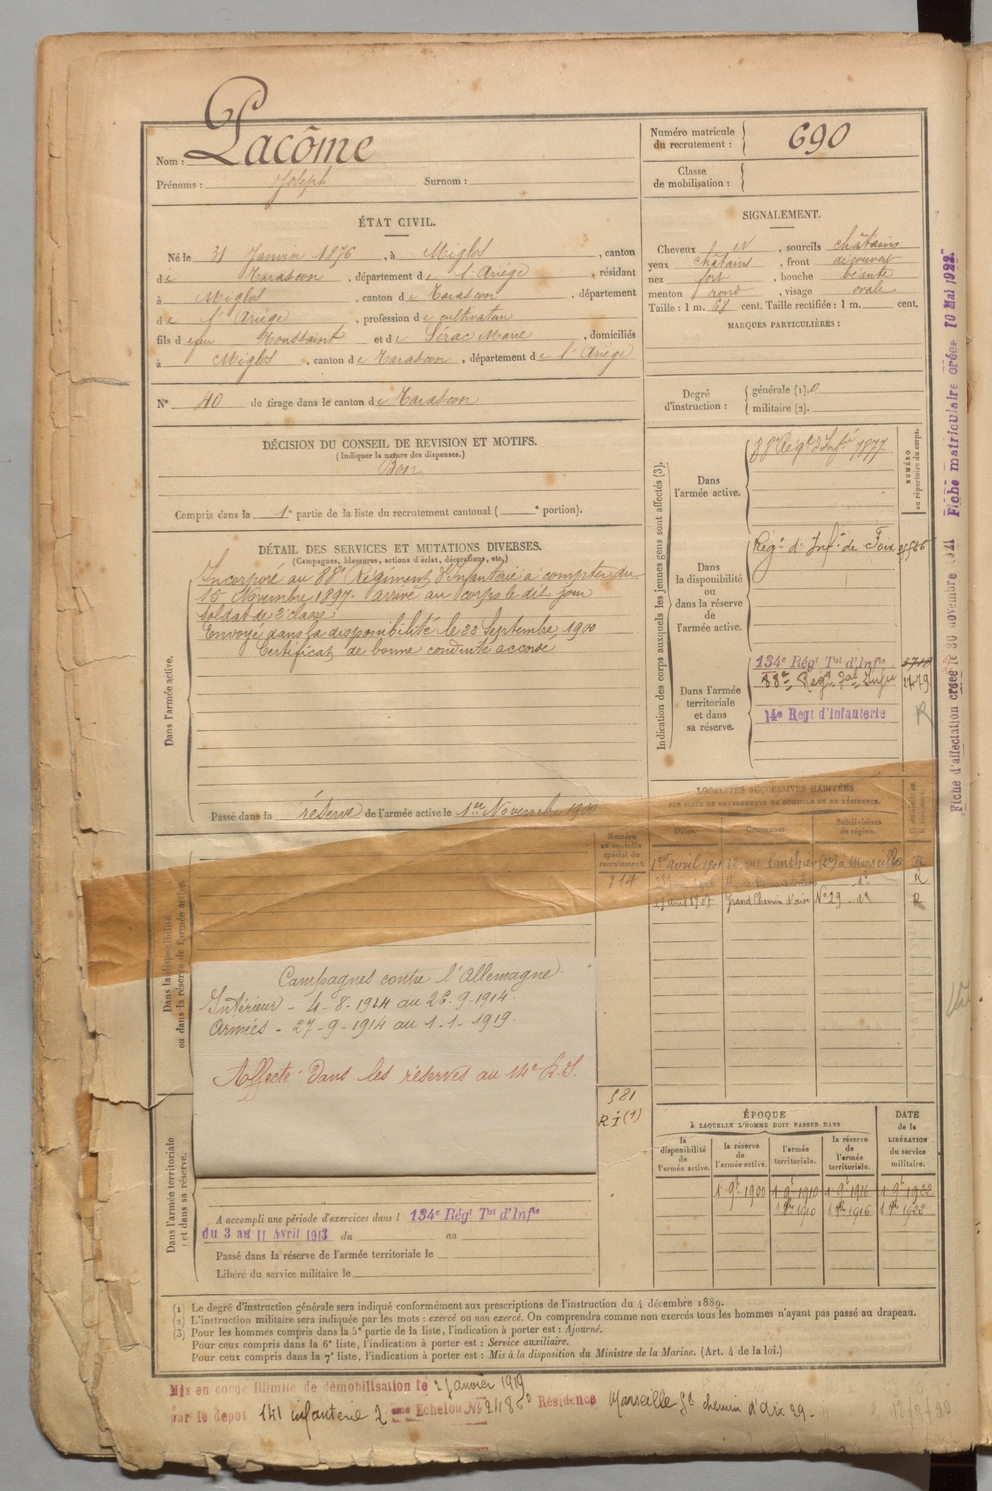 Nom : Lacôme
Prénoms : Joseph Surnom :
Numéro matricule du recrutement : 690
Classe de mobilisation :
ÉTAT CIVIL.
Né le 31 Janvier 1876, à Miglos, canton
de Tarascon, département de l'Ariège, résidant
à Miglos, canton de Tarascon, département
de l'Ariège, profession de cultivateur
fils de feu Toussaint et de Sérac Marie, domiciliés
à Miglos, canton de Tarascon, département de l'Ariège
N° 40 de tirage dans le canton de Tarascon
SIGNALEMENT.
Cheveux et, sourcils châtains
yeux châtains, front découvert
nez fort, bouche béante
menton rond, visage ovale
Taille : 1 m. 68 cent. Taille rectifiée : 1 m. cent.
MARQUES PARTICULIÈRES :
Degré d'instruction : générale (1). 0
militaire (2).
DÉCISION DU CONSEIL DE REVISION ET MOTIFS.
(Indiquer la nature des dispenses.)
Bon
Compris dans la 1e partie de la liste du recrutement cantonal ( e portion).
DÉTAIL DES SERVICES ET MUTATIONS DIVERSES.
(Campagnes, blessures, actions d'éclat, décorations, etc.)
Dans l'armée active.
Incorporé au 88e Régiment d'Infanterie à compter du
15 Novembre 1897. Arrivé au corps le dit jour
soldat de 2e classe.
Envoyé dans la disponibilité le 23 Septembre 1900
Certificat de bonne conduite accordé
Passé dans la réserve de l'armée active le 1er Novembre 1900
Indication des corps auxquels les jeunes gens sont affectés (3).
NUMÉRO au répertoire du corps.
Dans l'armée active.
88 Régt d'Infie 1877
Dans la disponibilité ou dans la réserve de l'armée active.
Régt d'Infie de Foix
Dans l'armée territoriale et dans sa réserve.
134e Régt Tal d'Infie
14e Regt d'Infanterie
R
Fiche d'affectation créée le 30 novembre 1921
Fiche matriculaire créée 10 Mai 1922.
LOCALITÉS SUCCESSIVES HABITÉES
PAR SUITE DE CHANGEMENTS DE DOMICILE OU DE RÉSIDENCE.
Dates. Communes. Subdivisions de région.
1er avril 1901 rue à Marseille R
R
Grand Chemin d'aix N° 29 - do R
Numéro au contrôle spécial du recrutement.
914
Dans la disponibilité ou dans la réserve de l'armée active.
Campagnes contre l'Allemagne.
Intérieur - 4-8-1914 au 26-9-1914.
Armées - 27-9-1914 au 1-1-1919.
Affecté dans les réserves au 14e R.I.
581
R I (1)
Dans l'armée territoriale et dans sa réserve.
A accompli une période d'exercices dans l 134e Régt Tal d'Infie
du 3 au 11 Avril 1913 du au
Passé dans la réserve de l'armée territoriale le
Libéré du service militaire le
ÉPOQUE
À LAQUELLE L'HOMME DOIT PASSER DANS
DATE de la LIBÉRATION du service militaire.
la disponibilité de l'armée active. la réserve de l'armée active. l'armée territoriale. la réserve de l'armée territoriale.
1 9bre 1900 1 9bre 1910 1 9bre 1916 1 9bre 1922
(1) Le degré d'instruction générale sera indiqué conformément aux prescriptions de l'instruction du 4 décembre 1889.
(2) L'instruction militaire sera indiquée par les mots : exercé ou non exercé. On comprendra comme non exercés tous les hommes n'ayant pas passé au drapeau.
(3) Pour les hommes compris dans la 5e partie de la liste, l'indication à porter est : Ajourné.
Pour ceux compris dans la 6e liste, l'indication à porter est : Service auxiliaire.
Pour ceux compris dans la 7e liste, l'indication à porter est : Mis à la disposition du Ministre de la Marine. (Art. 4 de la loi.)
Mis en congé illimité de démobilisation le 2 janvier 1919
par le dépôt 141 infanterie 2 ème Echelon No Résidence Marseille Gd chemin d'aix 29.